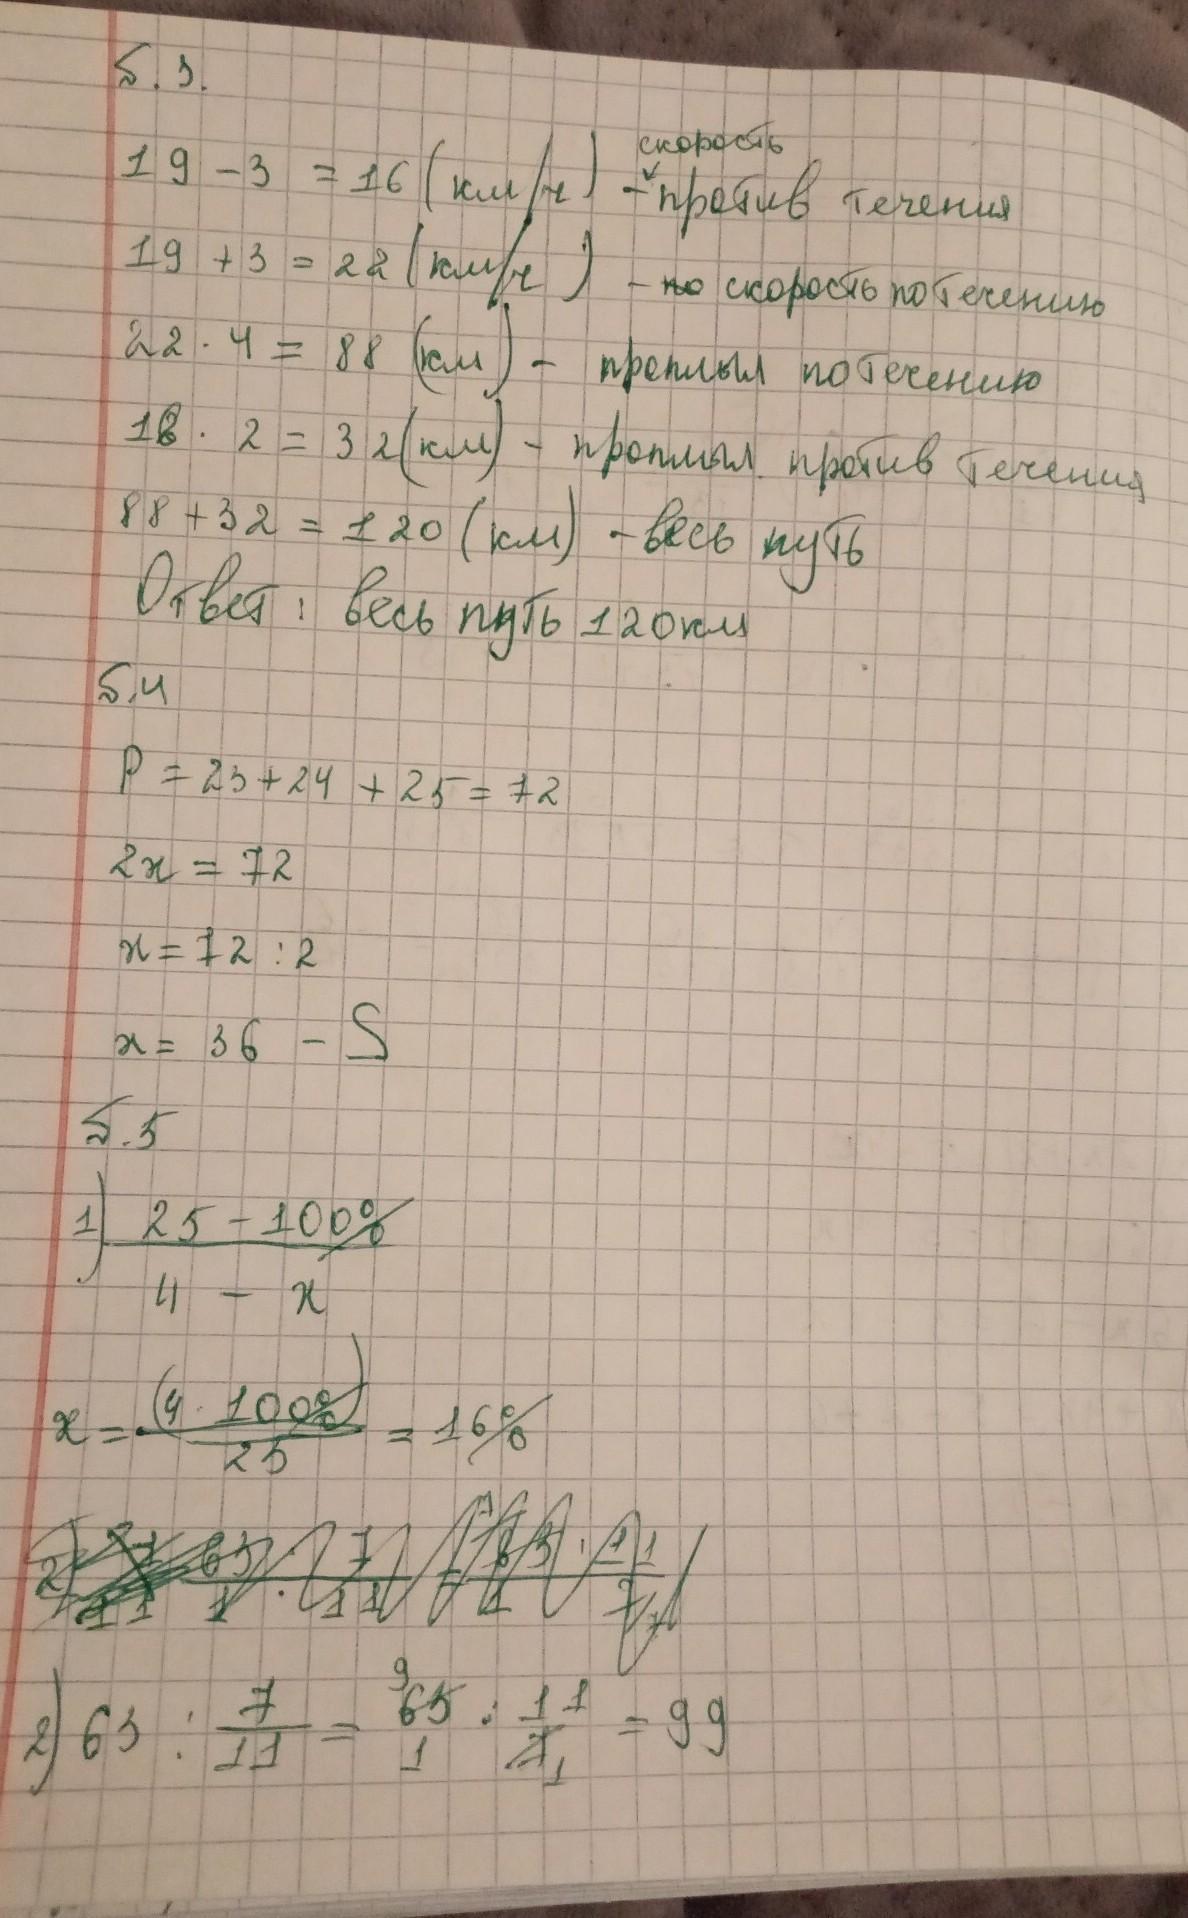 5.3.
19 - 3 = 16 (км/ч) - скорость против течения
19 + 3 = 22 (км/ч) - по скорость по течению
22 · 4 = 88 (км) - проплыл по течению
16 · 2 = 32 (км) - проплыл против течения
88 + 32 = 120 (км) - весь путь
Ответ: весь путь 120 км
5.4
P = 23 + 24 + 25 = 72
2x = 72
x = 72 : 2
x = 36 - S
5.5
1) 25 - 100%
4 - x
x = (4 · 100%) / 25 = 16%
2) 63 : 7/11 = 9 63/1 · 11/7 1 = 99